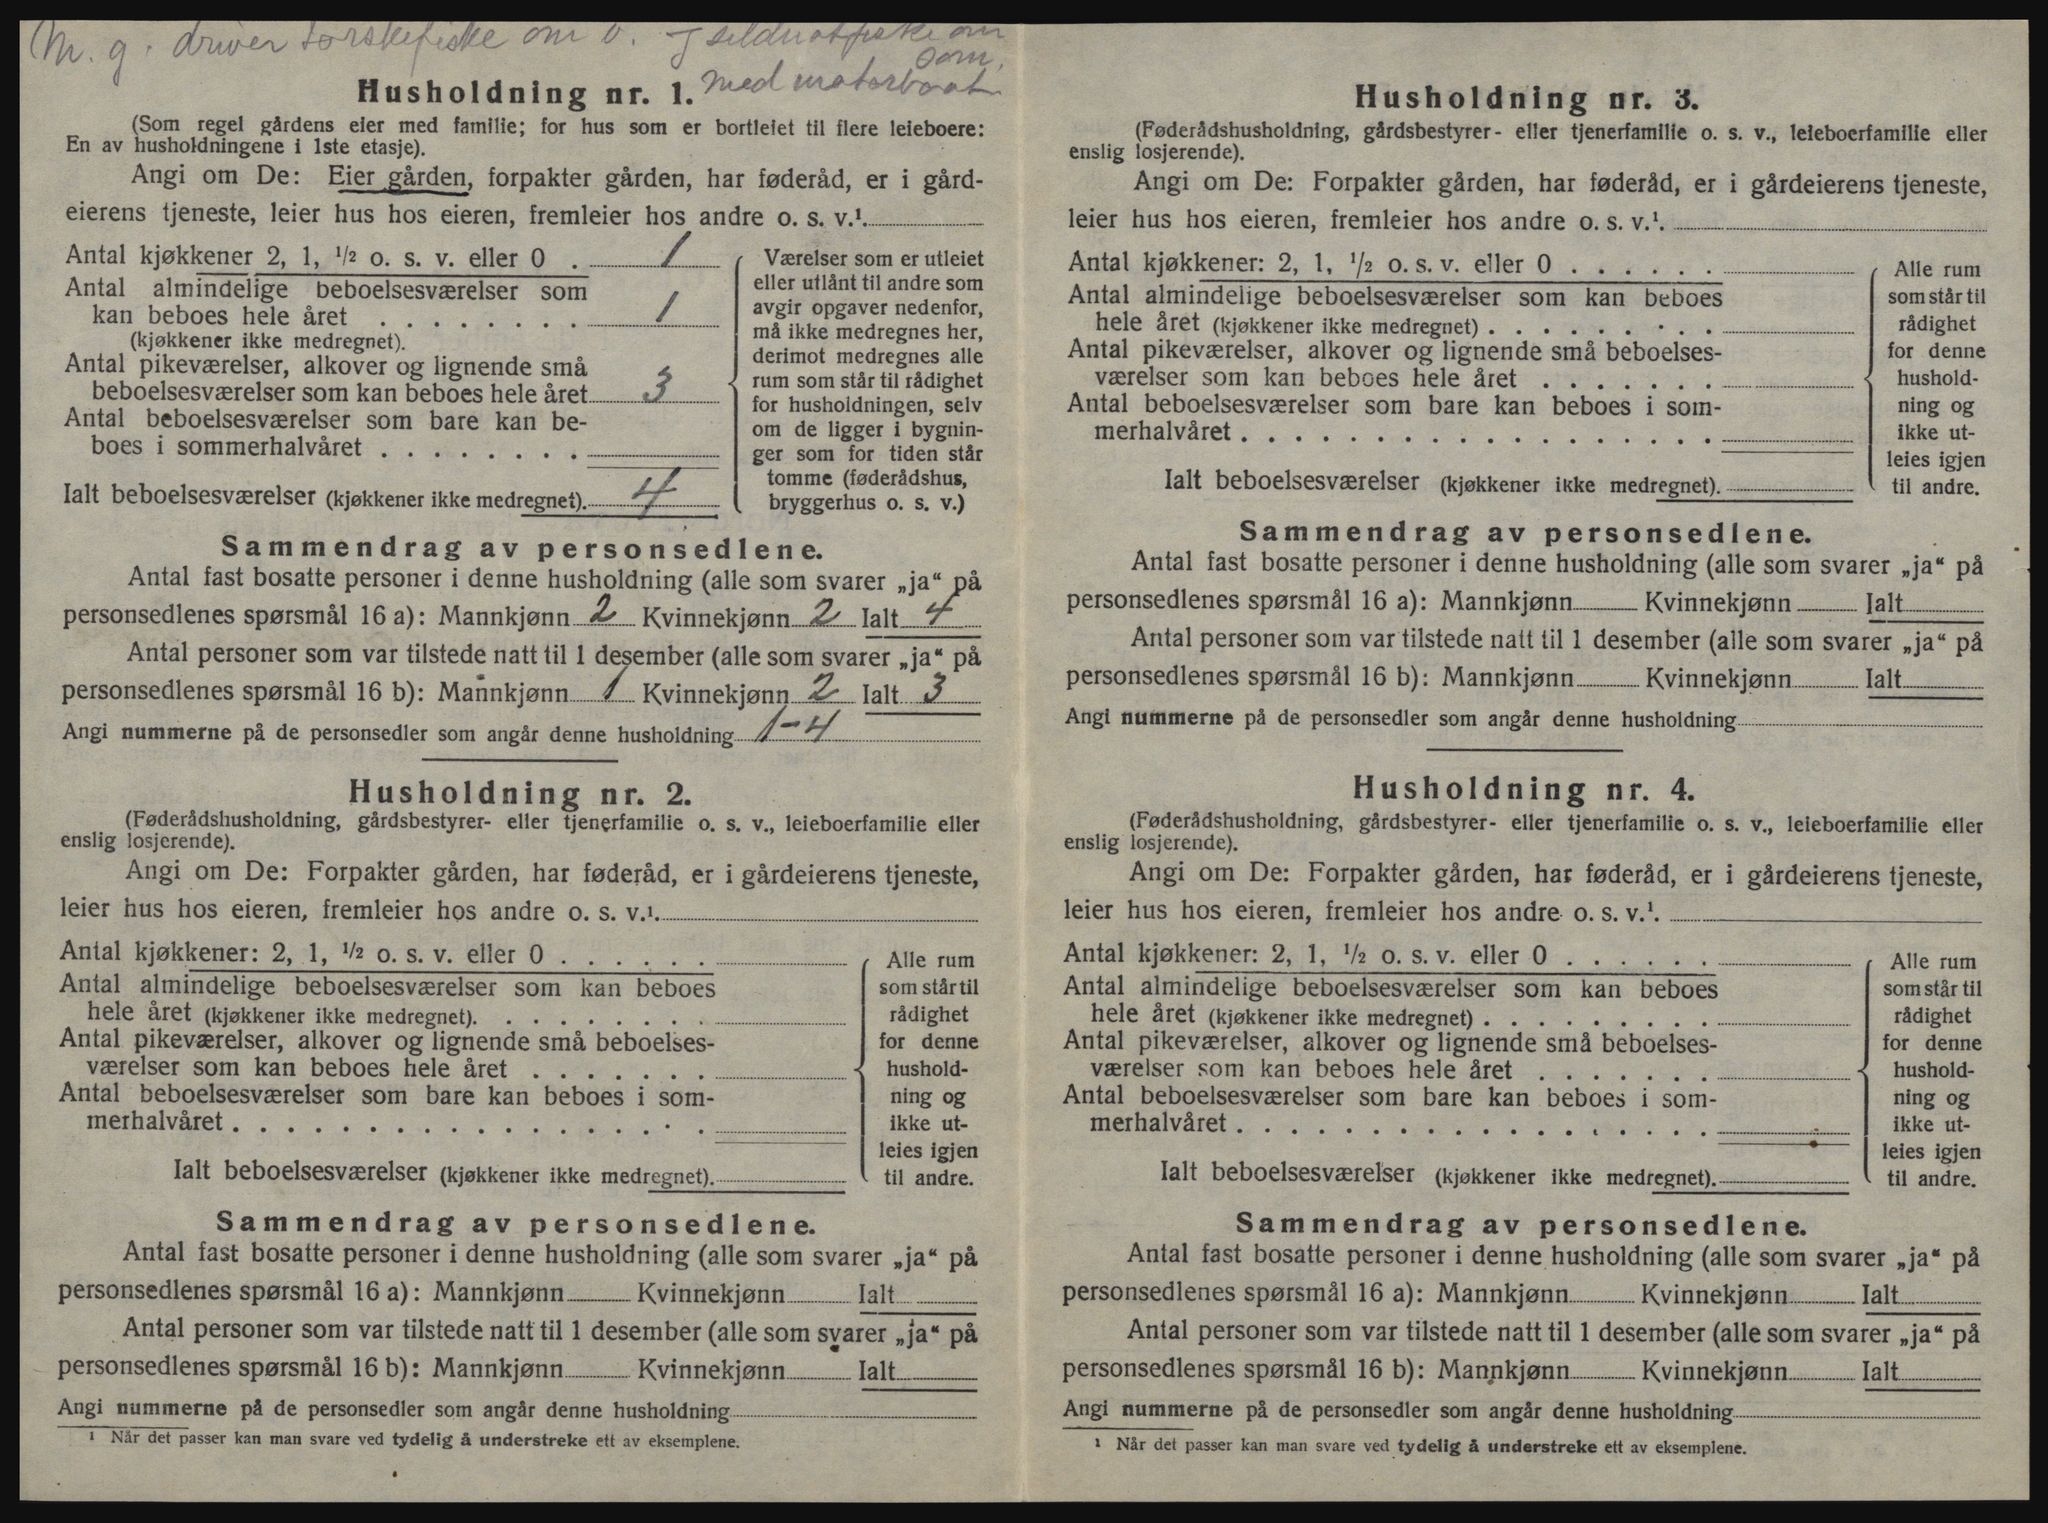 M. g. driver torskefiske om v. - sildnotfiske om
som.
med motorbaat
Husholdning nr. 1.
(Som regel gårdens eier med familie; for hus som er bortleiet til flere leieboere:
En av husholdningene i 1ste etasje).
Angi om De: Eier gården, forpakter gården, har føderåd, er i gård-
eierens tjeneste, leier hus hos eieren, fremleier hos andre o. s. v.¹
Antal kjøkkener 2, 1, ½ o. s. v. eller 0 . 1
Antal almindelige beboelsesværelser som
kan beboes hele året . . . . . . . . 1
(kjøkkener ikke medregnet).
Antal pikeværelser, alkover og lignende små
beboelsesværelser som kan beboes hele året 3
Antal beboelsesværelser som bare kan be-
boes i sommerhalvåret . . . . . . . .
Ialt beboelsesværelser (kjøkkener ikke medregnet). 4
Værelser som er utleiet
eller utlånt til andre som
avgir opgaver nedenfor,
må ikke medregnes her,
derimot medregnes alle
rum som står til rådighet
for husholdningen, selv
om de ligger i bygnin-
ger som for tiden står
tomme (føderådshus,
bryggerhus o. s. v.)
Sammendrag av personsedlene.
Antal fast bosatte personer i denne husholdning (alle som svarer „ja“ på
personsedlenes spørsmål 16 a): Mannkjønn 2 Kvinnekjønn 2 Ialt 4
Antal personer som var tilstede natt til 1 desember (alle som svarer „ja“ på
personsedlenes spørsmål 16 b): Mannkjønn 1 Kvinnekjønn 2 Ialt 3
Angi nummerne på de personsedler som angår denne husholdning 1-4
Husholdning nr. 2.
(Føderådshusholdning, gårdsbestyrer- eller tjenerfamilie o. s. v., leieboerfamilie eller
enslig losjerende).
Angi om De: Forpakter gården, har føderåd, er i gårdeierens tjeneste,
leier hus hos eieren, fremleier hos andre o. s. v.¹
Antal kjøkkener: 2, 1, ½ o. s. v. eller 0 . . . . . .
Antal almindelige beboelsesværelser som kan beboes
hele året (kjøkkener ikke medregnet). . . . . . . . .
Antal pikeværelser, alkover og lignende små beboelses-
værelser som kan beboes hele året . . . . . . .
Antal beboelsesværelser som bare kan beboes i som-
merhalvåret . . . . . . . . . . . . . . . . . .
Ialt beboelsesværelser (kjøkkener ikke medregnet).
Alle rum
som står til
rådighet
for denne
hushold-
ning og
ikke ut-
leies igjen
til andre.
Sammendrag av personsedlene.
Antal fast bosatte personer i denne husholdning (alle som svarer „ja“ på
personsedlenes spørsmål 16 a): Mannkjønn Kvinnekjønn Ialt
Antal personer som var tilstede natt til 1 desember (alle som svarer „ja“ på
personsedlenes spørsmål 16 b): Mannkjønn Kvinnekjønn Ialt
Angi nummerne på de personsedler som angår denne husholdning
¹ Når det passer kan man svare ved tydelig å understreke ett av eksemplene.
Husholdning nr. 3.
(Føderådshusholdning, gårdsbestyrer- eller tjenerfamilie o. s. v., leieboerfamilie eller
enslig losjerende).
Angi om De: Forpakter gården, har føderåd, er i gårdeierens tjeneste,
leier hus hos eieren, fremleier hos andre o. s. v.¹.
Antal kjøkkener: 2, 1, ½ o. s. v. eller 0 . . . . . .
Antal almindelige beboelsesværelser som kan beboes
hele året (kjøkkener ikke medregnet) . . . . . . . . .
Antal pikeværelser, alkover og lignende små beboelses-
værelser som kan beboes hele året . . . . . . .
Antal beboelsesværelser som bare kan beboes i som-
merhalvåret . . . . . . . . . . . . . . . . . .
Ialt beboelsesværelser (kjøkkener ikke medregnet).
Alle rum
som står til
rådighet
for denne
hushold-
ning og
ikke ut-
leies igjen
til andre.
Sammendrag av personsedlene.
Antal fast bosatte personer i denne husholdning (alle som svarer „ja“ på
personsedlenes spørsmål 16 a): Mannkjønn Kvinnekjønn Ialt
Antal personer som var tilstede natt til 1 desember (alle som svarer „ja“ på
personsedlenes spørsmål 16 b): Mannkjønn Kvinnekjønn Ialt
Angi nummerne på de personsedler som angår denne husholdning
Husholdning nr. 4.
(Føderådshusholdning, gårdsbestyrer- eller tjenerfamilie o. s. v., leieboerfamilie eller
enslig losjerende).
Angi om De: Forpakter gården, har føderåd, er i gårdeierens tjeneste,
leier hus hos eieren, fremleier hos andre o. s. v.¹.
Antal kjøkkener: 2, 1, ½ o. s. v. eller 0 . . . . . .
Antal almindelige beboelsesværelser som kan beboes
hele året (kjøkkener ikke medregnet) . . . . . . . . .
Antal pikeværelser, alkover og lignende små beboelses-
værelser som kan beboes hele året . . . . . . .
Antal beboelsesværelser som bare kan beboes i som-
merhalvåret . . . . . . . . . . . . . . . . . .
Ialt beboelsesværelser (kjøkkener ikke medregnet).
Alle rum
som står til
rådighet
for denne
hushold-
ning og
ikke ut-
leies igjen
til andre.
Sammendrag av personsedlene.
Antal fast bosatte personer i denne husholdning (alle som svarer „ja“ på
personsedlenes spørsmål 16 a): Mannkjønn Kvinnekjønn Ialt
Antal personer som var tilstede natt til 1 desember (alle som svarer „ja“ på
personsedlenes spørsmål 16 b): Mannkjønn Kvinnekjønn Ialt
Angi nummerne på de personsedler som angår denne husholdning
¹ Når det passer kan man svare ved tydelig å understreke ett av eksemplene.